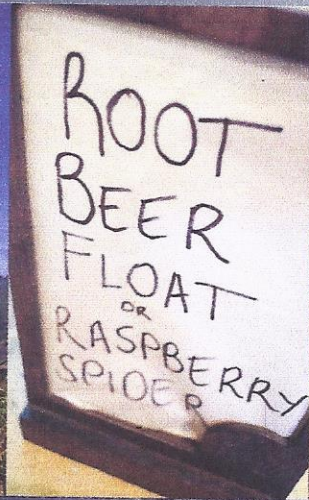 ROOT
BEER
FLOAT
OR
RASPBERRY
SPIDER